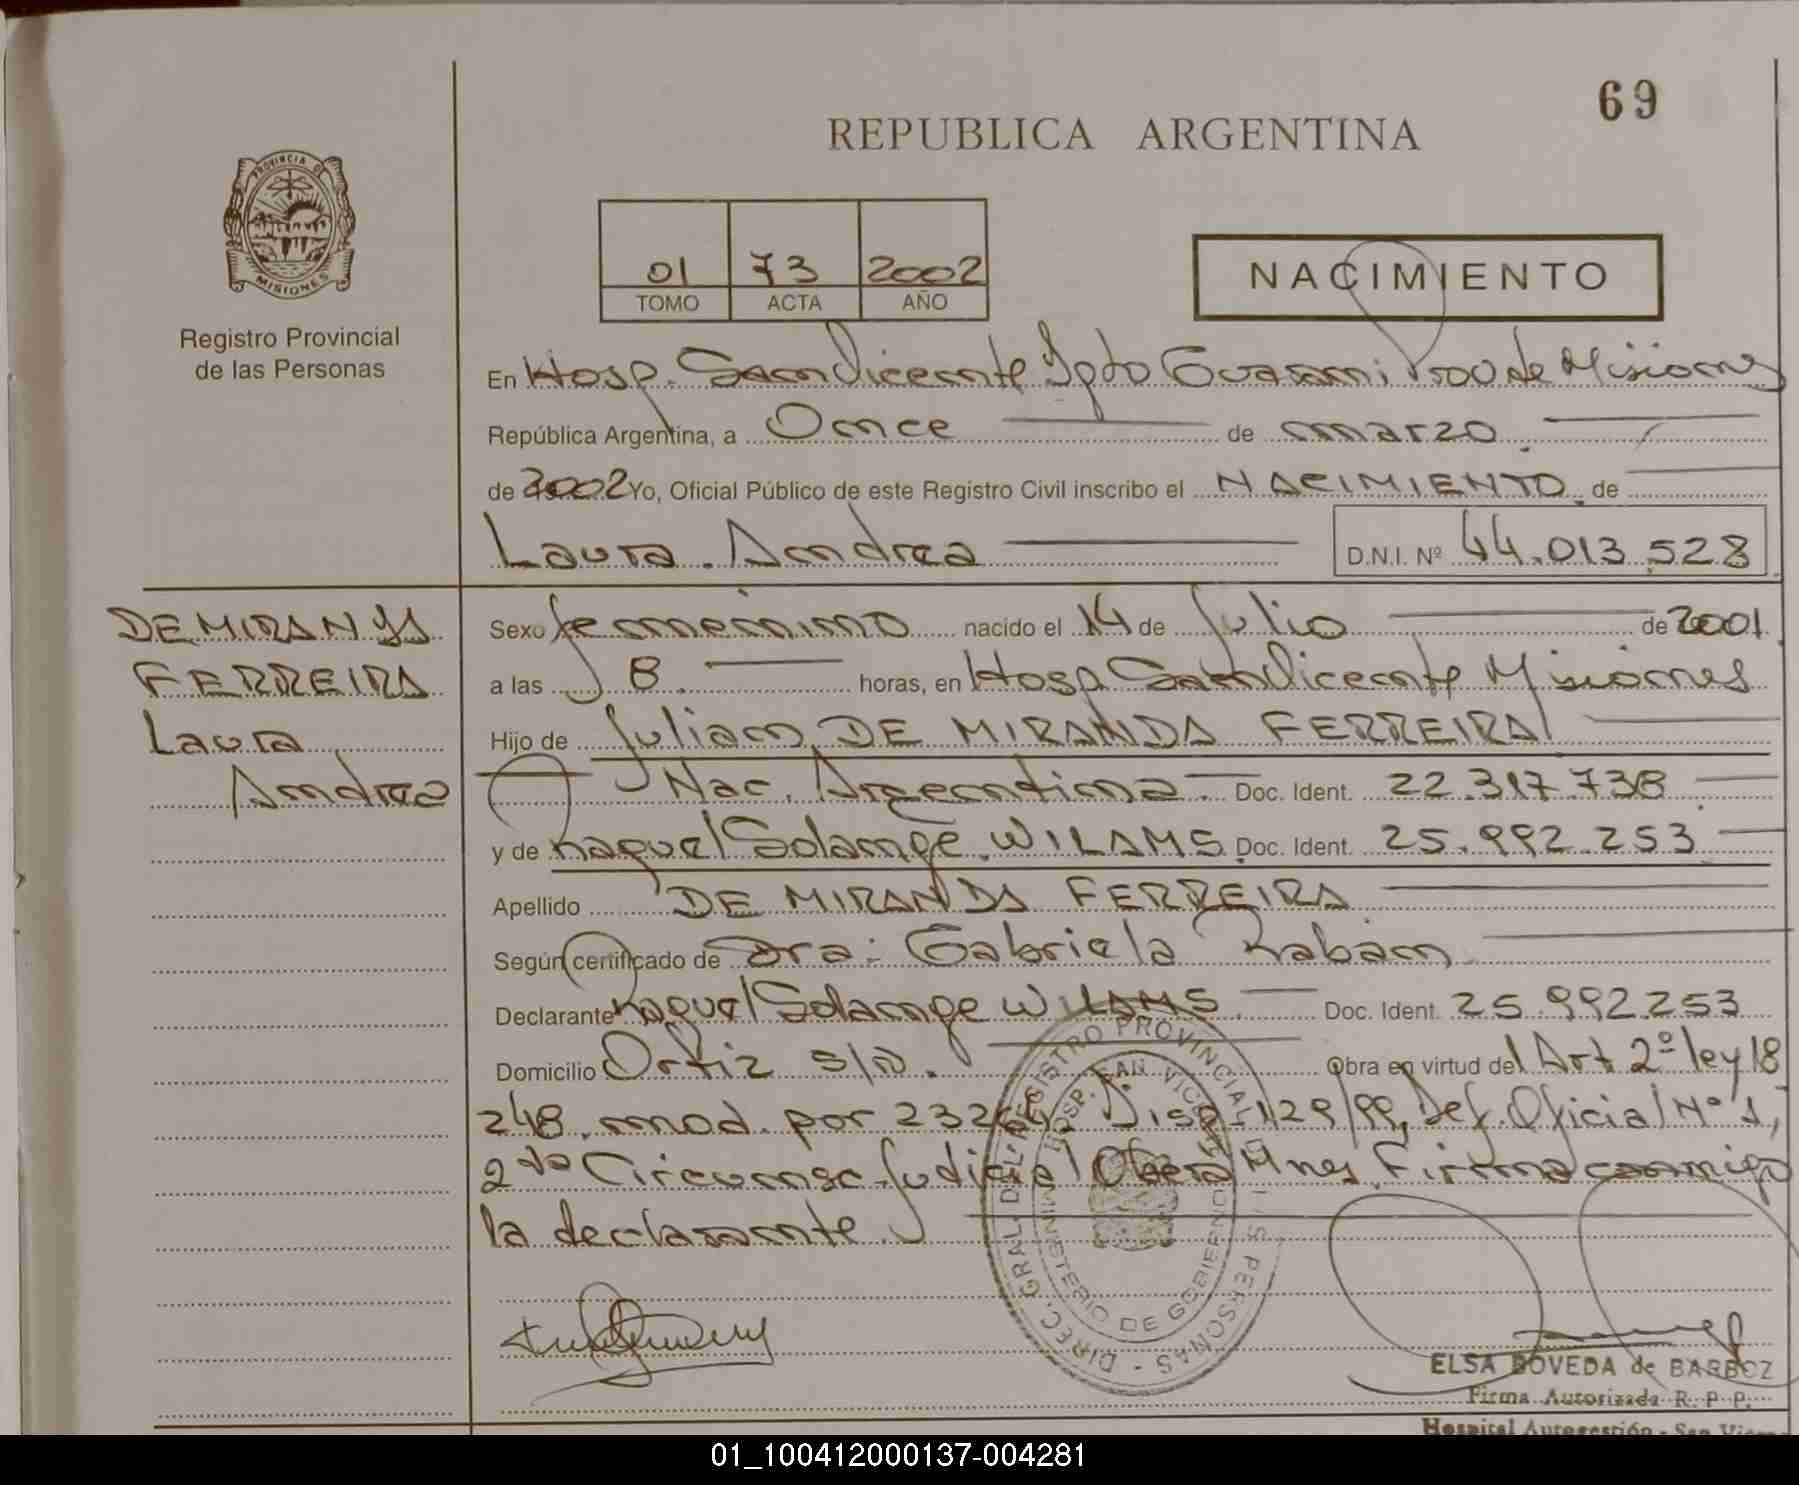 69
REPUBLICA ARGENTINA
PROVINCIA DE
MISIONES
Registro Provincial
de las Personas
01 73 2002
TOMO ACTA AÑO
NACIMIENTO
En Hosp. San Vicente Dpto Guarani Prov de Misiones
República Argentina, a Once de marzo
de 2002 Yo, Oficial Público de este Registro Civil inscribo el NACIMIENTO de
Laura Andrea D.N.I. Nº 44.013.528
DE MIRANDA
FERREIRA
Laura
Andrea
Sexo femenino nacido el 14 de Julio de 2001
a las 8 horas, en Hosp San Vicente Misiones
Hijo de Julian DE MIRANDA FERREIRA
Nac. Argentina Doc. Ident. 22.317.738
y de Raquel Solange WILAMS Doc. Ident. 25.992.253
Apellido DE MIRANDA FERREIRA
Según certificado de Dra: Gabriela Raban
Declarante Raquel Solange WILAMS Doc. Ident. 25.992.253
Domicilio Ortiz s/n. Obra en virtud del Art 2º ley 18
248 mod. por 23264, Disp. 129/99, Def. Oficial Nº 1,
2da Circunsc. Judicial Obera Mnes. Firma conmigo
la declarante.
DIREC. GRAL. DEL REGISTRO PROVINCIAL DE LAS PERSONAS
HOSP. SAN VICENTE
MINISTERIO DE GOBIERNO
ELSA BOVEDA de BARBOZ
Firma Autorizada R. P. P.
Hospital Autogestión - San Vicen
01_100412000137-004281